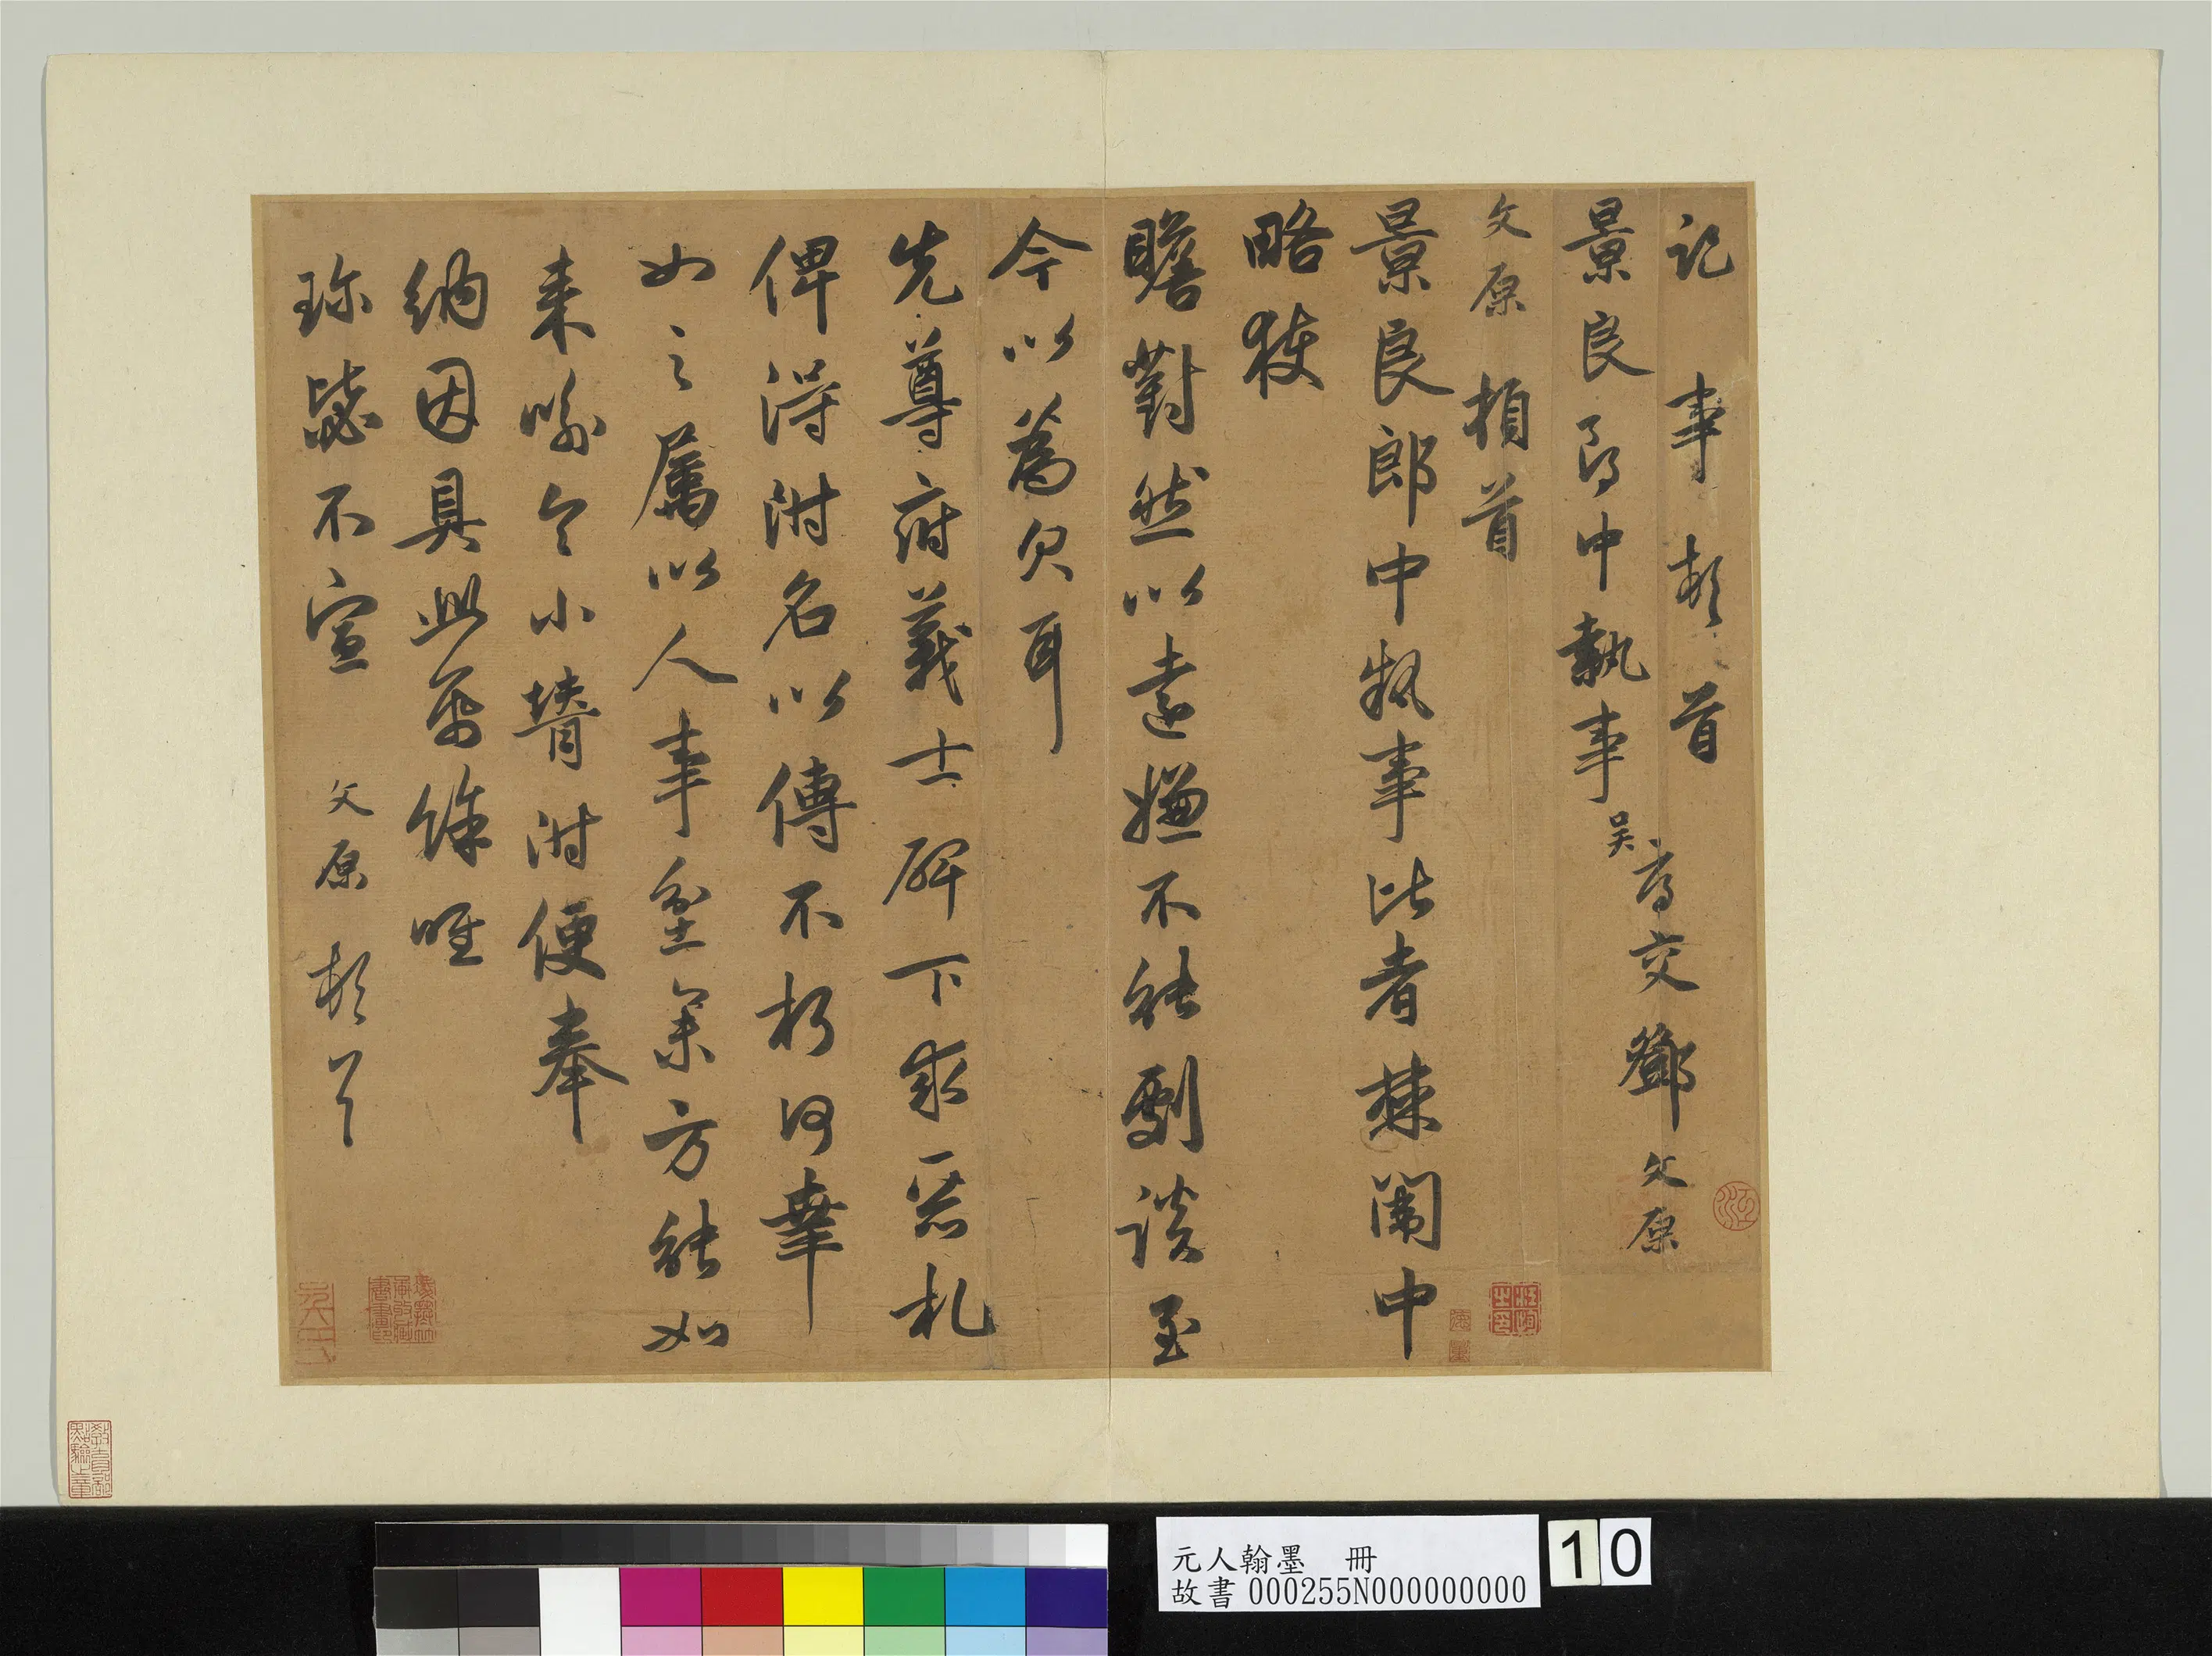 記事頓首
景良郎中執事
吳 寓交鄧文原
文原頓首
景良郎中執事比者棘闈中
略獲
瞻對然以遠嫌不能劇談至
今以為欠耳
先尊府義士碑下求惡札
俾得附名以傳不朽何幸
如之屬以人事坌集方能如
來喻令小壻附便奉
納因具此為候唯
珎毖不宣 文原頓首
元人翰墨 冊
故書 000255N000000000
10